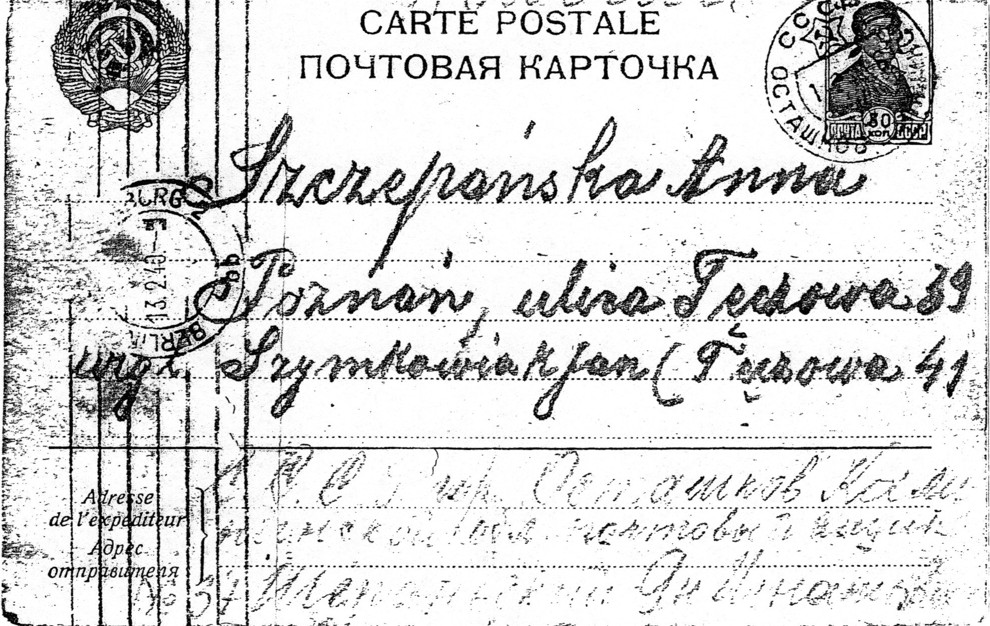 CARTE POSTALE
ПОЧТОВАЯ КАРТОЧКА
СССР
ОСТАШКОВ
ПОЧТА 30 КОП. СССР
Szczepańska Anna
BERLIN
13.2.40
Poznań, ulica Tęczowa 39
Szymkowiak Jan (Tęczowa 41
Adresse
de l'expéditeur
Адрес
отправителя
С.С.С.Р гор. Осташков Кали
почтовый ящик
№ 37 Ян